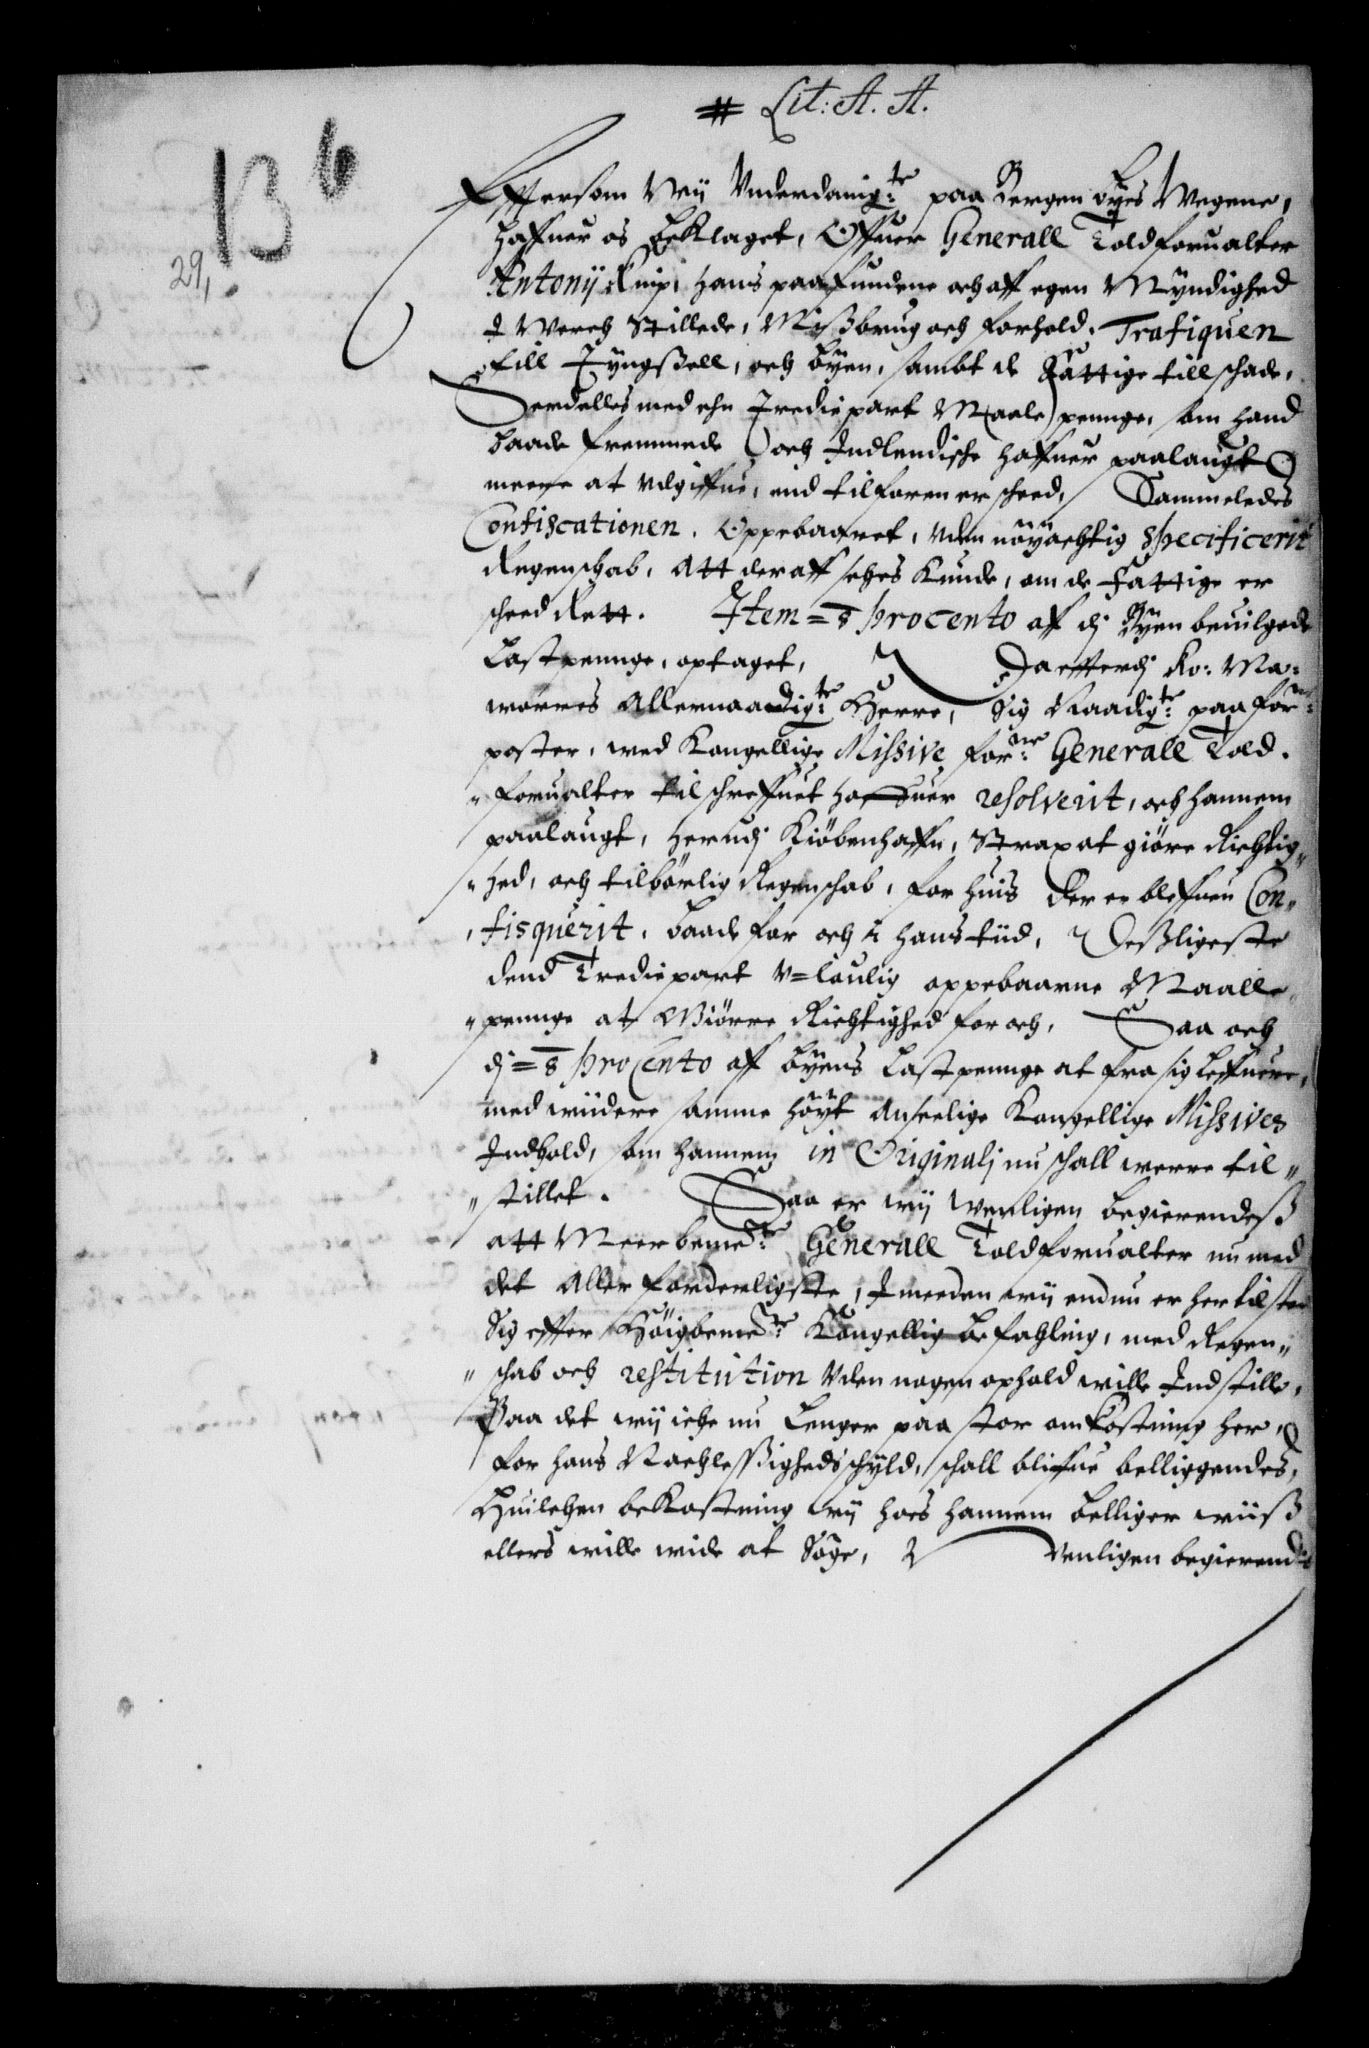 # Lit: A. A.
13 6
29,
Effersom Wij Vnderdanigte: paa Bergen Byes Wegene,
haffuer os beklaget, Offuer Generall Toldforualter
Antonij Knip, hans paafundene och aff egen Myndighed
I Werch stillede, Missbrug och forhold, Trafiquen
till Tyngssell, och byen, sambt de Fattige till schade,
Serdelles med ehn Trediepart Maale pennge, som hand
baade fremmede och Indlendische haffuer paalaugt
meere at vdgiffue, end tilforen er scheed, Sammeledes
Confiscationen. Oppebaaret, vden nöyachtig specificerit
Regenschab, att deraff sehes kunde, om de Fattige er
scheed Rett. Item = 8 procento aff dj Byen beuilgede
Lastpennge, optaget, Da efterdj Ko: Ma:
worres Allernaadigte: Herre, Sig Naadigte: paa forne:
poster, wed Kongellige Missive forne: Generall Told-
forualter tilschreffuet haffuer resolverit, och hannem
paalaugt, her udj Kiöbenhaffn, strax at giöre Richtig-
hed, och tilbörlig Regenschab, for huis der er bleffuen Con-
fisquerit, baade for och i hans tiid, Desligeste
dend Trediepart v=loulig oppebaarne Maalle-
pennge at Giörre Richtighed for och, Saa och
dj = 8 procento aff byens Lastpennge at fra sig leffuere,
med wiidere samme höyt anseelige Kongellige Missives
Indhold, som hannem in Originalj nu schall werre til-
stillet. Saa er wij Wenligen begierendess
att Meerbemte: Generall Toldforualter nu med
det aller forderligste, Imeeden wij endnu er her tilsted
Sig effter Höigbemte: Kongellig befahling, med Regen-
schab och restitution Vden nogen ophold wille Indstille,
Paa det wij iche nu lenger paa stor omkostning her,
for hans Nachlessigheds schyld, schall bliffue belliggendes,
Huilchen bekostning wij hoes hannem belliger wiiss
ellers wille wide at Söge, Venligen begierendis